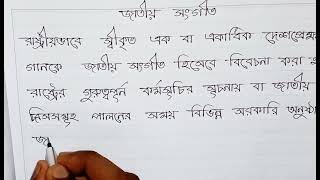 জাতীয় সংগীত
রাষ্ট্রীয়ভাবে স্বীকৃত এক বা একাধিক দেশপ্রেমমূ
গানকে জাতীয় সংগীত হিসেবে বিবেচনা করা হ
রাষ্ট্রের গুরুত্বপূর্ণ কর্মসূচির সূচনায় বা জাতীয়
দিবসসমূহ পালনের সময় বিভিন্ন সরকারি অনুষ্ঠা